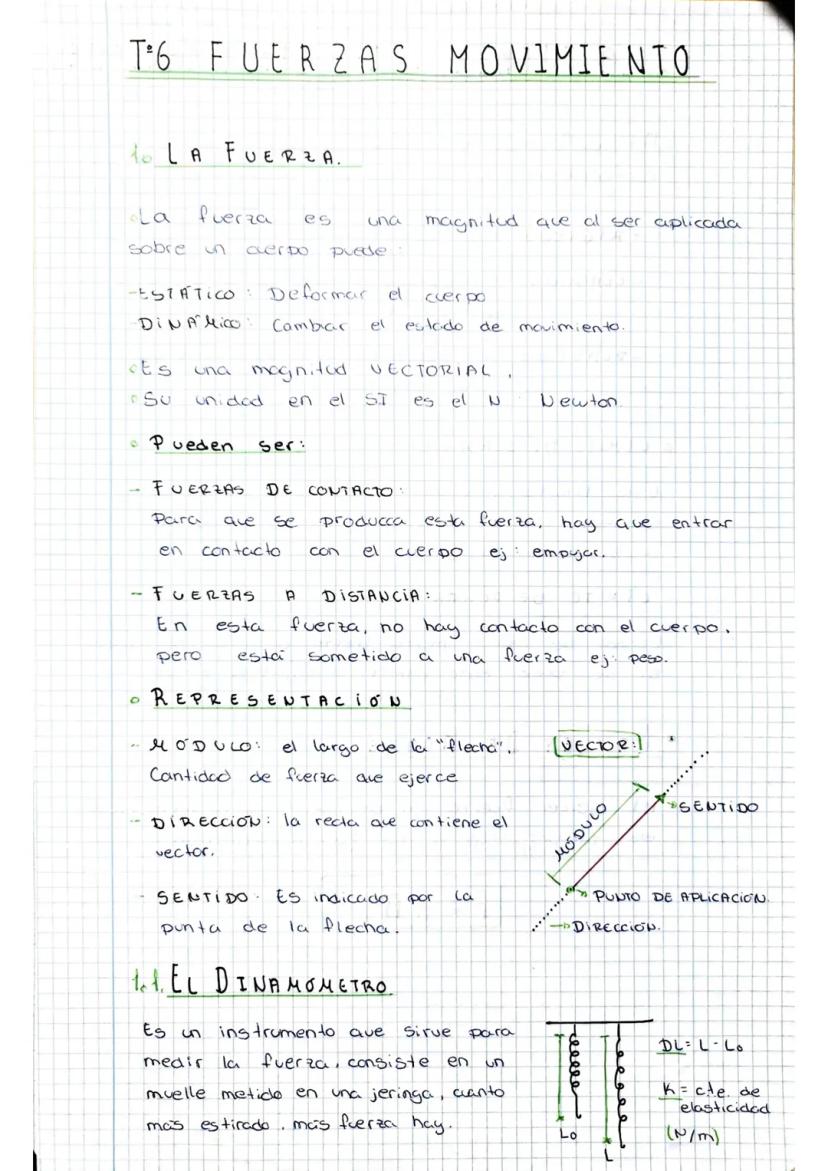 Tº6 FUERZAS MOVIMIENTO
1. LA FUERZA.
La fuerza es una magnitud que al ser aplicada
sobre un cuerpo puede:
-ESTÁTICO: Deformar el cuerpo
-DINÁMICO: Cambiar el estado de movimiento.
Es una magnitud VECTORIAL.
Su unidad en el SI es el N Newton
Pueden ser:
- FUERZAS DE CONTACTO:
Para que se producca esta fuerza, hay que entrar
en contacto con el cuerpo ej: empujar.
- FUERZAS A DISTANCIA:
En esta fuerza, no hay contacto con el cuerpo,
pero está sometido a una fuerza ej: peso.
REPRESENTACIÓN
- MÓDULO: el largo de la "flecha".
Cantidad de fuerza que ejerce
- DIRECCIÓN: la recta que contiene el
vector.
- SENTIDO. Es indicado por la
punta de la flecha.
VECTOR:
MÓDULO
SENTIDO
PUNTO DE APLICACIÓN.
DIRECCIÓN.
1.1. EL DINAMÓMETRO
Es un instrumento que sirve para
medir la fuerza, consiste en un
muelle metido en una jeringa, cuanto
más estirado, más fuerza hay.
Lo
L
DL= L - Lo
K = cte. de
elasticidad
(N/m)